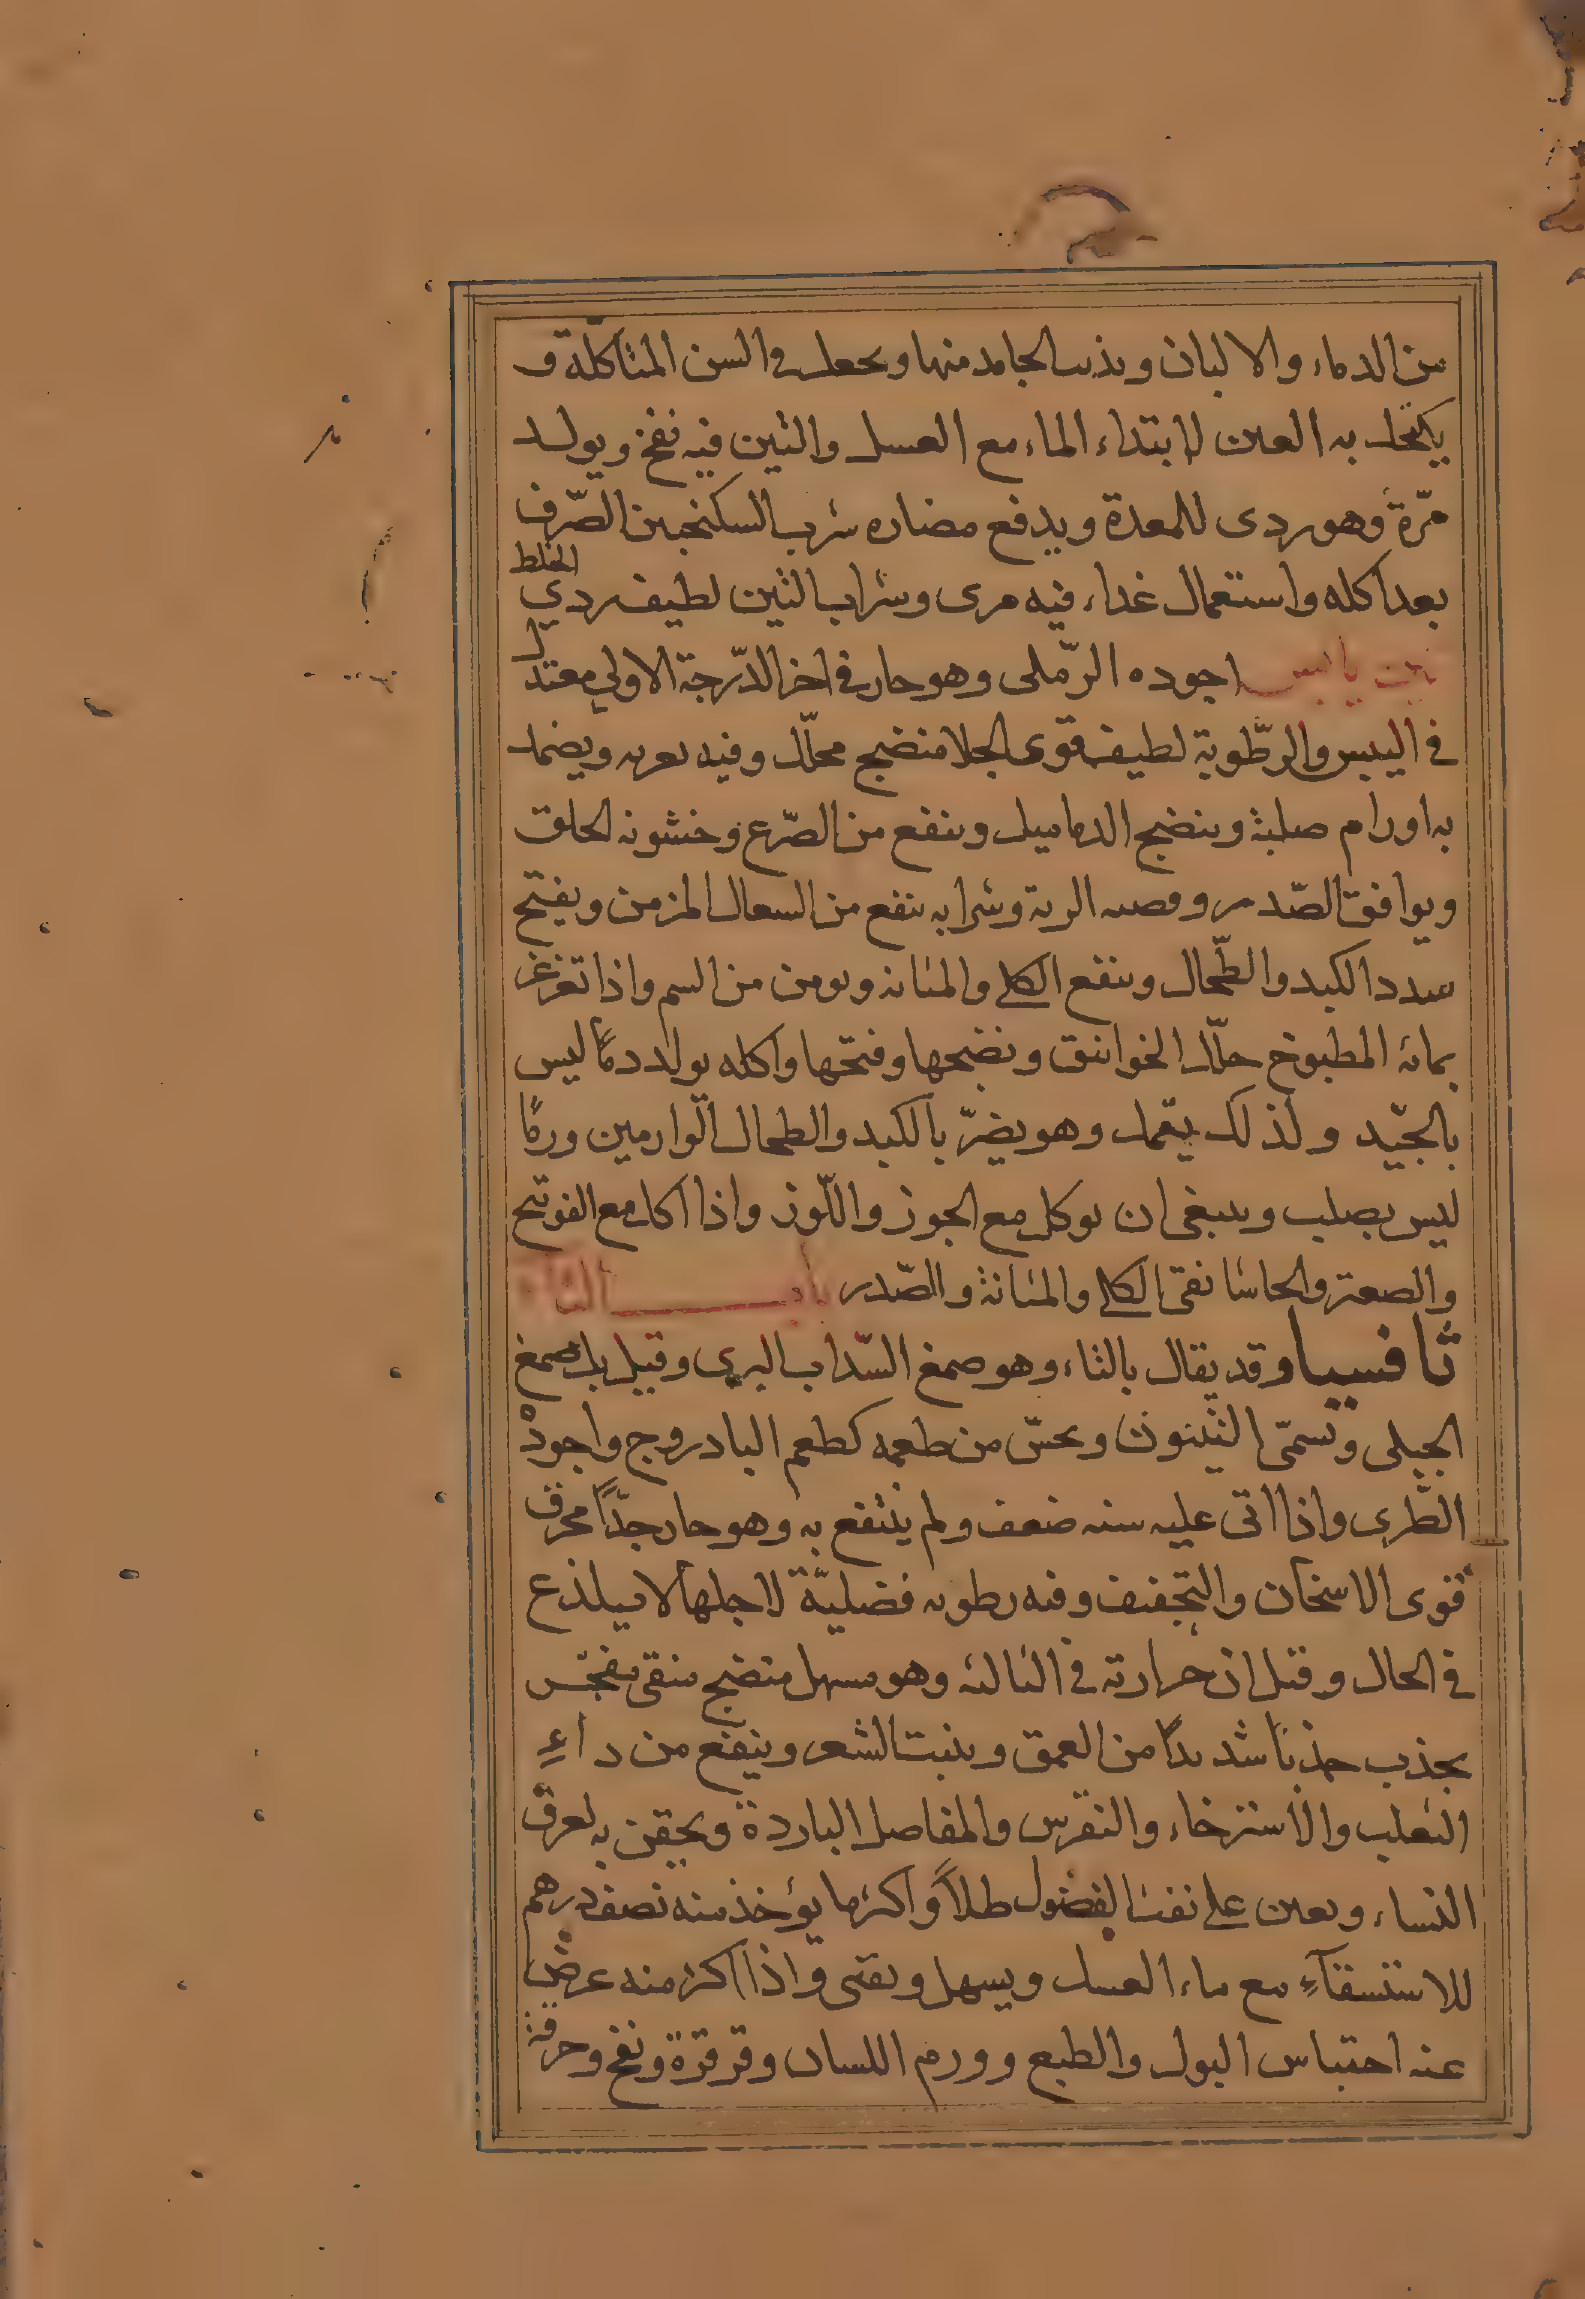 من الدماء والالبان ويذيب الجامد منها ويجعل في السن المتاكلة و
يكتحل به العين لابتداء الماء مع العسل والتين فيه نفخ ويولد
مرّة وهو ردى للمعدة ويدفع مضاره شرب السكنجبين الصّرف
بعد اكله واستعمال غداء فيه مرى وشراب التين لطيف ردي الخلط
تين يابس اجوده الرّملى وهو حار في اخر الدّرجة الاولي معتدل
في اليبس والرطّوبة لطيف قوى الجلا منضج محلّل وفيه تعريه ويضمد
به اورام صلبة وينضج الدماميل وينفع من الصّرع وخشونه الحلق
ويوافق الصّدر وقصبه الرية وشرابه ينفع من السعال المزمن ويفتح
سدد الكبد والطّحال وينفع الكلي والمثانه ويومن من السم واذا تغرغر
بمائه المطبوخ حلّل الخوانيق ونضجها وفتحها واكله يولد دمًا ليس
بالجيّد ولذلك يقمل وهو يضرّ بالكبد والطحال الوارمين ورمًا
ليس بصلب وينبغى ان يوكل مع الجوز واللّوز واذا اكل مع الفوتنج
والصعتر والحاشا نقى الكلي والمثانة والصّدر باب الثاء
ثافسيا وقد يقال بالتاء وهو صمغ السّذاب البرى وقيل بل صمغ
الجبلى وتسمّى الينتون ويحسّ من طعمه كطعم البادروج واجوده
الطّرى واذا اتى عليه سنه ضعف ولم ينتفع به وهو حار جدّاً محرق
قوى الاسخان والتجفيف وفيه رطوبه فضليّة لاجلها لا يلذع
في الحال وقيل ان حرارته في الثالثه وهو مسهل منضج منقى مفجّر
يجذب جذبًا شديدًا من العمق وينبت الشعر وينفع من داءِ
الثعلب والاسترخاء والنقرس والمفاصل الباردة ويحقن به لعرق
النساء ويعين على نفث الفضول طلاًء واكثر ما يؤخذ منه نصف درهم
للاستسقآءِ مع ماء العسل ويسهل ويقى واذا اكثر منه عرض
عنه احتباس البول والطبع وورم اللسان وقرقرة ونفخ وحرقة